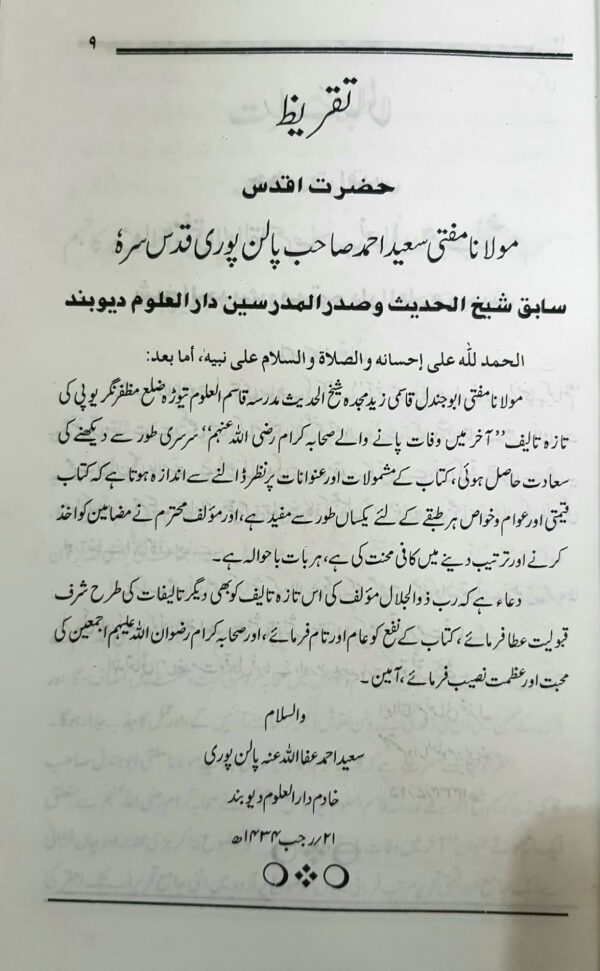 ۹
تقریظ
حضرت اقدس
مولانا مفتی سعید احمد صاحب پالن پوری قدس سرہٗ
سابق شیخ الحدیث وصدر المدرسین دار العلوم دیوبند
الحمد لله على إحسانه والصلاة والسلام على نبيه، أما بعد:
مولانا مفتی ابو جندل قاسمی زید مجدہ شیخ الحدیث مدرسہ قاسم العلوم تیوڑہ ضلع مظفر نگر یو پی کی
تازہ تالیف ’’آخر میں وفات پانے والے صحابہ کرام رضی اللہ عنہم‘‘ سرسری طور سے دیکھنے کی
سعادت حاصل ہوئی، کتاب کے مشمولات اور عنوانات پر نظر ڈالنے سے اندازہ ہوتا ہے کہ کتاب
قیمتی اور عوام وخواص ہر طبقے کے لئے یکساں طور سے مفید ہے، اور مؤلف محترم نے مضامین کو اخذ
کرنے اور ترتیب دینے میں کافی محنت کی ہے، ہر بات باحوالہ ہے۔
دعاء ہے کہ رب ذوالجلال مؤلف کی اس تازہ تالیف کو بھی دیگر تالیفات کی طرح شرف
قبولیت عطا فرمائے، کتاب کے نفع کو عام اور تام فرمائے، اور صحابہ کرام رضوان اللہ علیہم اجمعین کی
محبت اور عظمت نصیب فرمائے، آمین۔
والسلام
سعید احمد عفا اللہ عنہ پالن پوری
خادم دار العلوم دیوبند
۲۱/رجب ۱۴۳۴ھ